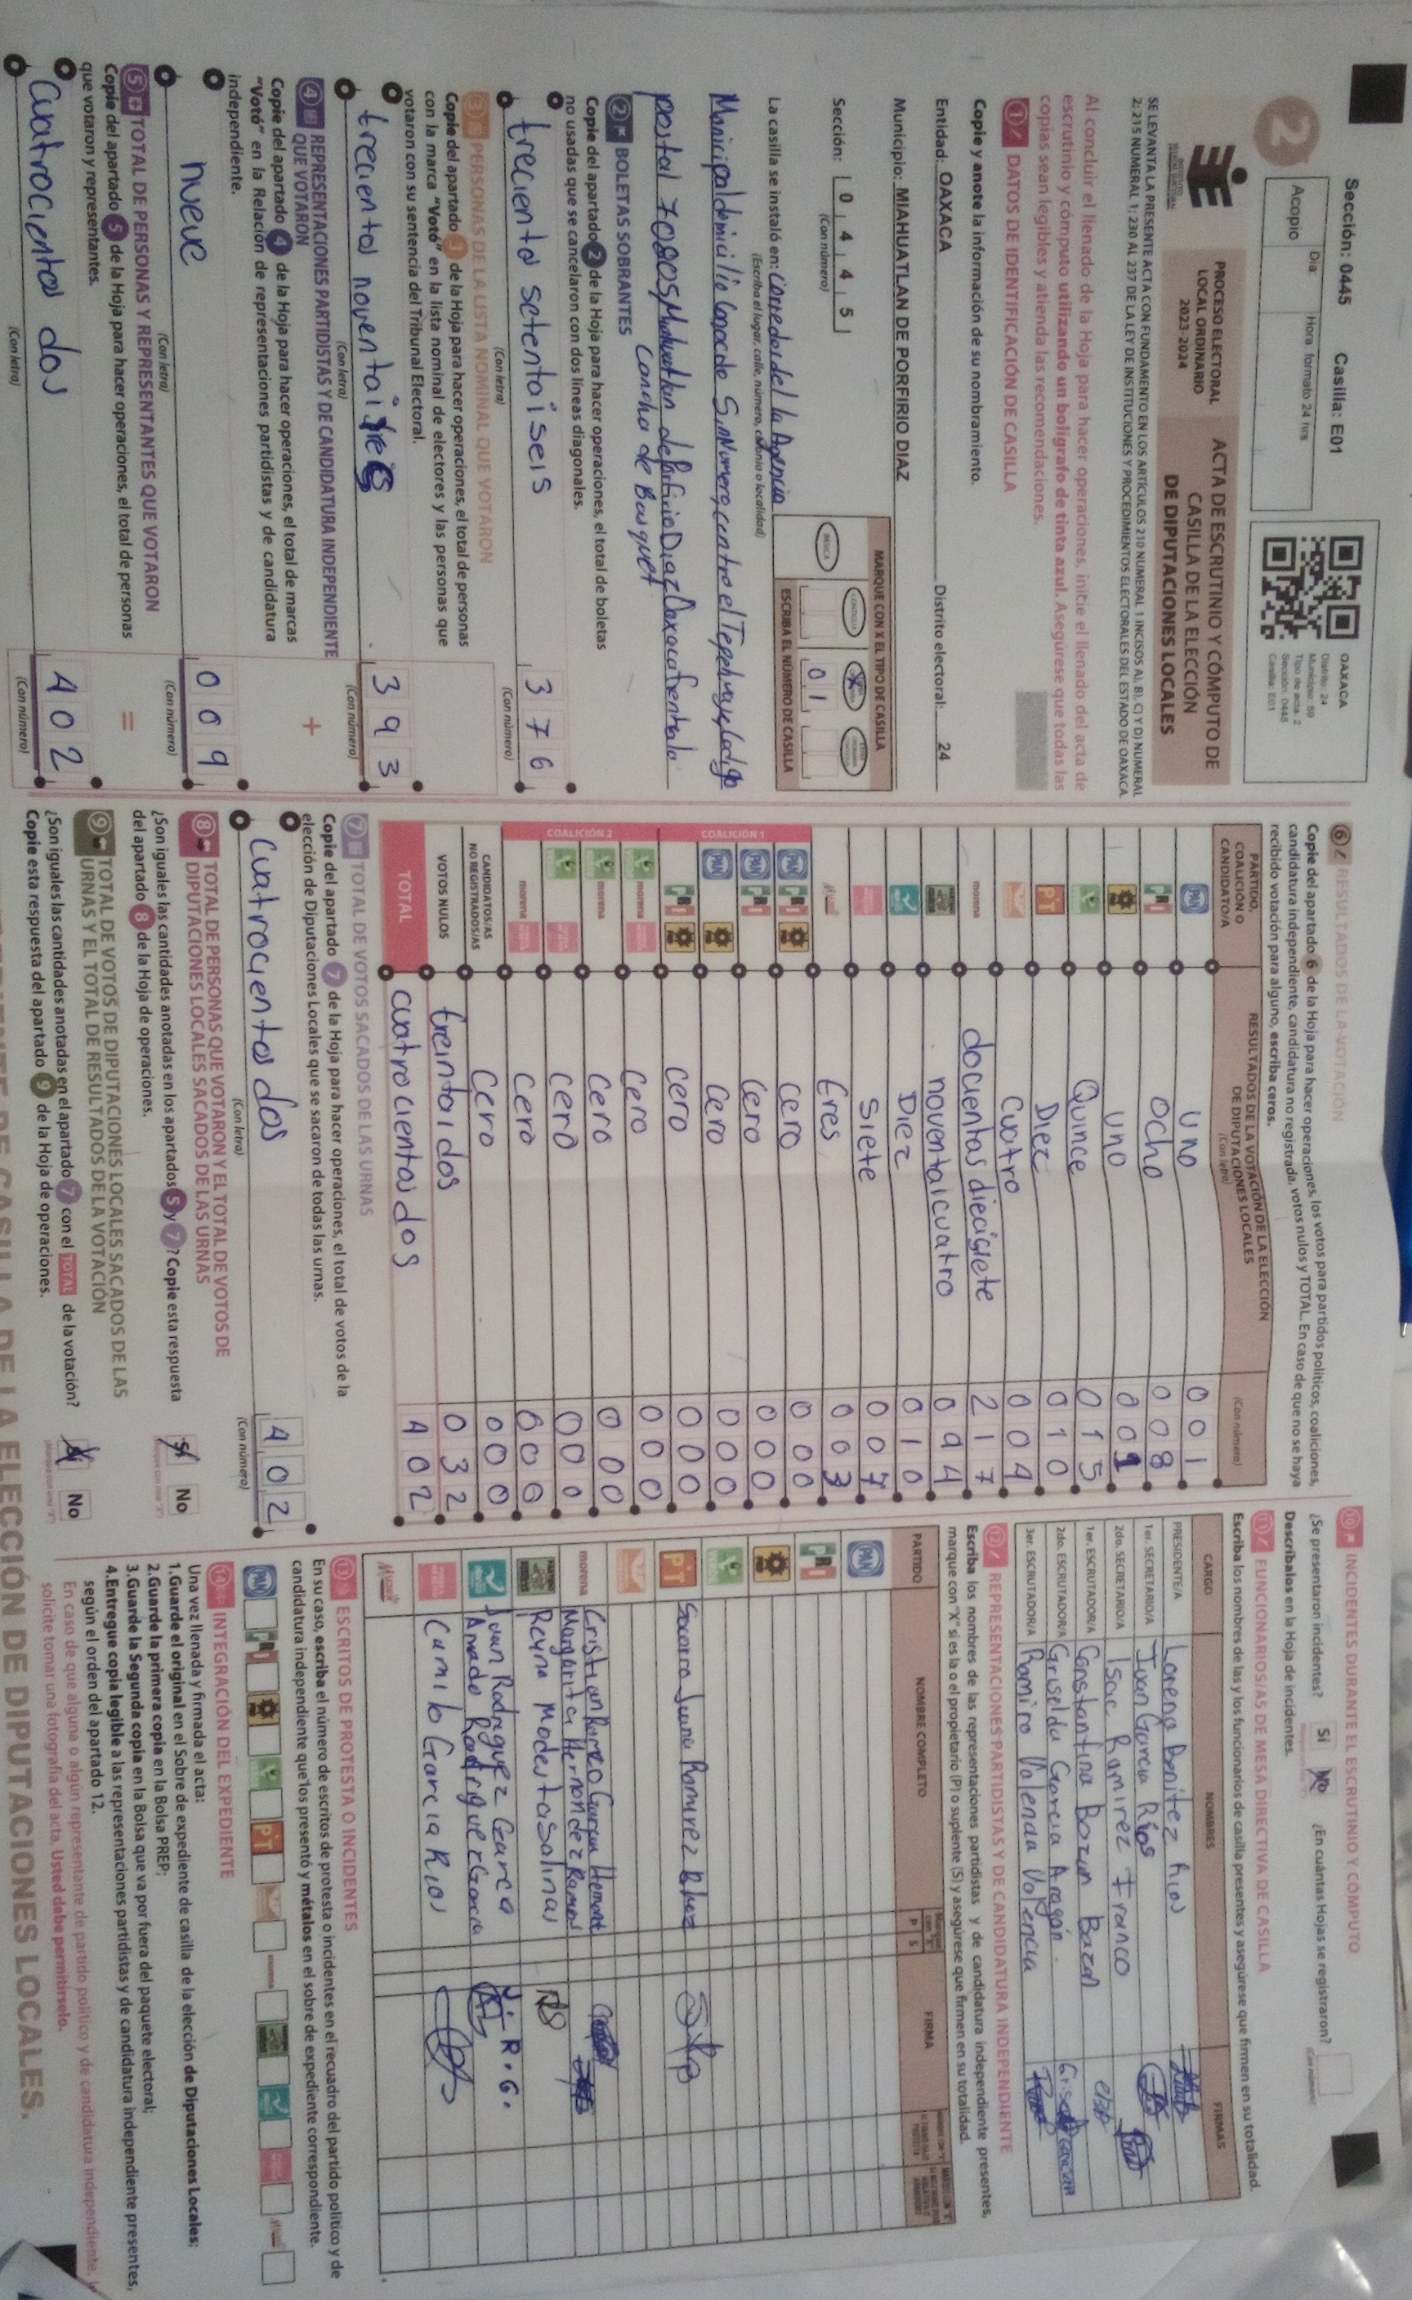 Sección: 0445 Casilla: E01
2
Acopio
Día
Hora formato 24 hrs
OAXACA
Distrito: 24
Municipio: 59
Tipo de acta: 2
Sección: 0445
Casilla: E01
PROCESO ELECTORAL
LOCAL ORDINARIO
2023-2024
ACTA DE ESCRUTINIO Y CÓMPUTO DE
CASILLA DE LA ELECCIÓN
DE DIPUTACIONES LOCALES
SE LEVANTA LA PRESENTE ACTA CON FUNDAMENTO EN LOS ARTÍCULOS 210 NUMERAL 1 INCISOS A), B), C) Y D) NUMERAL
2; 215 NUMERAL 1; 230 AL 237 DE LA LEY DE INSTITUCIONES Y PROCEDIMIENTOS ELECTORALES DEL ESTADO DE OAXACA.
Al concluir el llenado de la Hoja para hacer operaciones, inicie el llenado del acta de
escrutinio y cómputo utilizando un bolígrafo de tinta azul. Asegúrese que todas las
copias sean legibles y atienda las recomendaciones.
1 DATOS DE IDENTIFICACIÓN DE CASILLA
Copie y anote la información de su nombramiento.
Entidad: OAXACA Distrito electoral: 24
Municipio: MIAHUATLAN DE PORFIRIO DIAZ
Sección: 0 4 4 5
(Con número)
MARQUE CON X EL TIPO DE CASILLA
BÁSICA
0 1
ESCRIBA EL NÚMERO DE CASILLA
La casilla se instaló en: Corredor del la Agencia
(Escriba el lugar, calle, número, colonia o localidad)
Municipal domicilio Conocdo S. nNumero, centro el Tepehuaje, codigo
postal 70805 Miahuatlan de Porfirio Diaz Oaxaca frente la
Cancha de Basquet
2 BOLETAS SOBRANTES
Copie del apartado 2 de la Hoja para hacer operaciones, el total de boletas
no usadas que se cancelaron con dos líneas diagonales.
treciento setentaiseis 3 7 6
(Con letra) (Con número)
3 PERSONAS DE LA LISTA NOMINAL QUE VOTARON
Copie del apartado 3 de la Hoja para hacer operaciones, el total de personas
con la marca "Votó" en la lista nominal de electores y las personas que
votaron con su sentencia del Tribunal Electoral.
trecientos noventaitres 3 9 3
(Con letra) (Con número)
4 REPRESENTACIONES PARTIDISTAS Y DE CANDIDATURA INDEPENDIENTE
QUE VOTARON +
Copie del apartado 4 de la Hoja para hacer operaciones, el total de marcas
"Votó" en la Relación de representaciones partidistas y de candidatura
independiente.
nueve 0 0 9
(Con letra) (Con número)
5 TOTAL DE PERSONAS Y REPRESENTANTES QUE VOTARON =
Copie del apartado 5 de la Hoja para hacer operaciones, el total de personas
que votaron y representantes.
cuatrocientos dos 4 0 2
(Con letra) (Con número)
6 RESULTADOS DE LA VOTACIÓN
Copie del apartado 6 de la Hoja para hacer operaciones, los votos para partidos políticos, coaliciones,
candidatura independiente, candidatura no registrada, votos nulos y TOTAL. En caso de que no se haya
recibido votación para alguno, escriba ceros.
PARTIDO,
COALICIÓN O
CANDIDATO/A
RESULTADOS DE LA VOTACIÓN DE LA ELECCIÓN
DE DIPUTACIONES LOCALES
(Con letra) (Con número)
PAN uno 0 0 1
PRI ocho 0 0 8
PRD uno 0 0 1
Quince 0 1 5
PT Diez 0 1 0
cuatro 0 0 4
morena docientos diecisiete 2 1 7
noventaicuatro 0 9 4
Diez 0 1 0
siete 0 0 7
tres 0 0 3
COALICIÓN 1
PAN PRI PRD cero 0 0 0
PAN PRI cero 0 0 0
PAN PRD cero 0 0 0
PRI PRD cero 0 0 0
COALICIÓN 2
morena cero 0 0 0
morena cero 0 0 0
cero 0 0 0
morena cero 0 0 0
CANDIDATOS/AS
NO REGISTRADOS/AS cero 0 0 0
VOTOS NULOS treintaidos 0 3 2
TOTAL cuatrocientos dos 4 0 2
7 TOTAL DE VOTOS SACADOS DE LAS URNAS
Copie del apartado 7 de la Hoja para hacer operaciones, el total de votos de la
elección de Diputaciones Locales que se sacaron de todas las urnas.
cuatrocientos dos 4 0 2
(Con letra) (Con número)
8 TOTAL DE PERSONAS QUE VOTARON Y EL TOTAL DE VOTOS DE
DIPUTACIONES LOCALES SACADOS DE LAS URNAS
¿Son iguales las cantidades anotadas en los apartados 5 y 7? Copie esta respuesta
del apartado 8 de la Hoja de operaciones.
Sí No
9 TOTAL DE VOTOS DE DIPUTACIONES LOCALES SACADOS DE LAS
URNAS Y EL TOTAL DE RESULTADOS DE LA VOTACIÓN
¿Son iguales las cantidades anotadas en el apartado 7 con el TOTAL de la votación?
Copie esta respuesta del apartado 9 de la Hoja de operaciones.
Sí No
10 INCIDENTES DURANTE EL ESCRUTINIO Y CÓMPUTO
¿Se presentaron incidentes? Sí No ¿En cuántas Hojas se registraron?
Descríbalos en la Hoja de incidentes.
11 FUNCIONARIOS/AS DE MESA DIRECTIVA DE CASILLA
Escriba los nombres de las y los funcionarios de casilla presentes y asegúrese que firmen en su totalidad.
CARGO NOMBRES FIRMAS
PRESIDENTE/A Lorena Benitez Rios
1er. SECRETARIO/A Juan Garcia Ríos
2do. SECRETARIO/A Isac Ramirez Franco
1er. ESCRUTADOR/A Constantina Bazan Bazan
2do. ESCRUTADOR/A Griselda Garcia Aragón
3er. ESCRUTADOR/A Ramiro Valencia Valencia
12 REPRESENTACIONES PARTIDISTAS Y DE CANDIDATURA INDEPENDIENTE
Escriba los nombres de las representaciones partidistas y de candidatura independiente presentes,
marque con "X" si es la o el propietario (P) o suplente (S) y asegúrese que firmen en su totalidad.
PARTIDO NOMBRE COMPLETO P S FIRMA
PAN
PRI
PRD
PT Socorro Juana Ramirez
morena Cristian Romeo
Margarita Hernandez Ramos
Reyna Modesto Salinas RS
Juan Rodriguez Garca J. R. G.
Amado Rodriguez Garcia
Camilo Garcia Rios
13 ESCRITOS DE PROTESTA O INCIDENTES
En su caso, escriba el número de escritos de protesta o incidentes en el recuadro del partido político y de
candidatura independiente que los presentó y métalos en el sobre de expediente correspondiente.
PAN PRI PRD PT morena
14 INTEGRACIÓN DEL EXPEDIENTE
Una vez llenada y firmada el acta:
1.Guarde el original en el Sobre de expediente de casilla de la elección de Diputaciones Locales;
2.Guarde la primera copia en la Bolsa PREP;
3.Guarde la Segunda copia en la Bolsa que va por fuera del paquete electoral;
4.Entregue copia legible a las representaciones partidistas y de candidatura independiente presentes,
según el orden del apartado 12.
En caso de que alguna o algún representante de partido político y de candidatura independiente, le
solicite tomar una fotografía del acta. Usted debe permitírselo.
DE CASILLA DE LA ELECCIÓN DE DIPUTACIONES LOCALES.